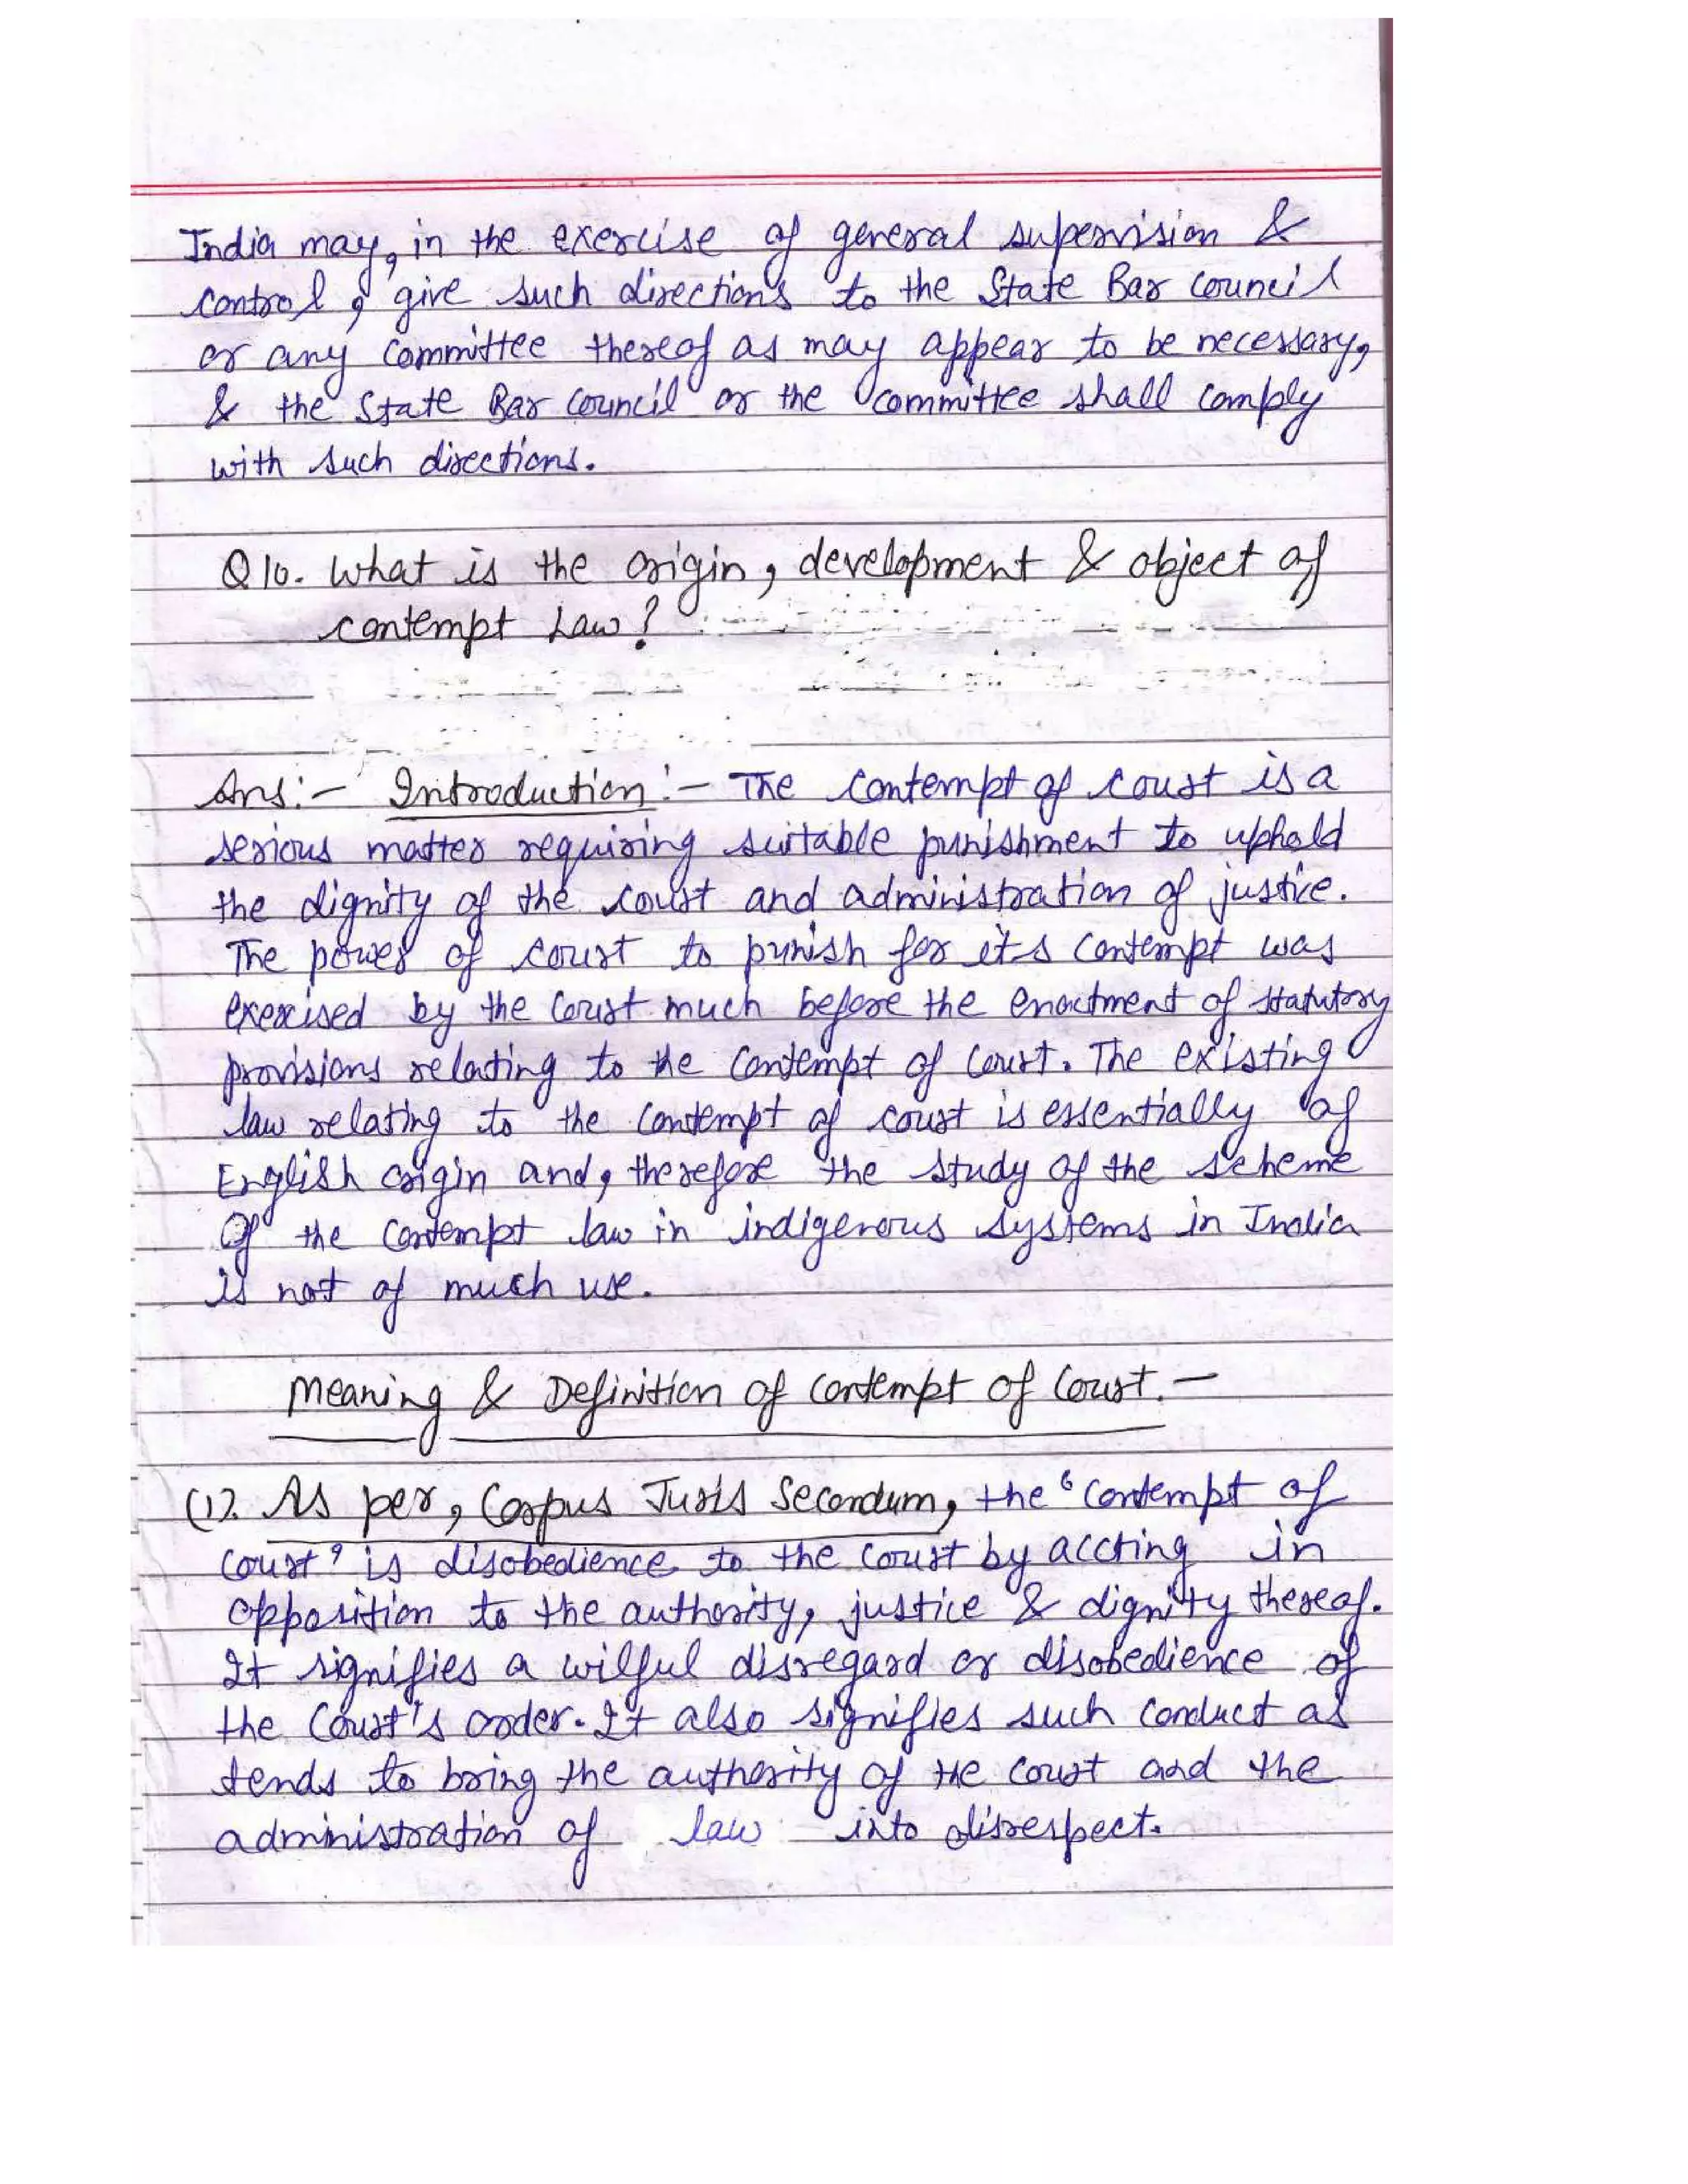 India may, in the exercise of general supervision &
control, give such directions to the State Bar Council
or any Committee thereof as may appear to be necessary,
& the State Bar Council or the committee shall comply
with such directions.
Q10. What is the origin, development & object of
contempt Law?
Ans:- Introduction:- The Contempt of court is a
serious matter requiring suitable punishment to uphold
the dignity of the court and administration of justice.
The power of court to punish for its Contempt was
exercised by the Court much before the enactment of statutory
provisions relating to the Contempt of Court. The existing
law relating to the Contempt of court is essentially of
English origin and, therefore the study of the scheme
Of the Contempt law in indigenous systems in India
is not of much use.
Meaning & Definition of Contempt of Court.-
(1). As per, Corpus Juris Secondum, the 'Contempt of
Court' is disobedience to the Court by accting in
opposition to the authority, justice & dignity thereof.
It signifies a wilful disregard or disobedience of
the Court's order. It also signifies such Conduct as
tends to bring the authority of the Court and the
administration of law into disrespect.